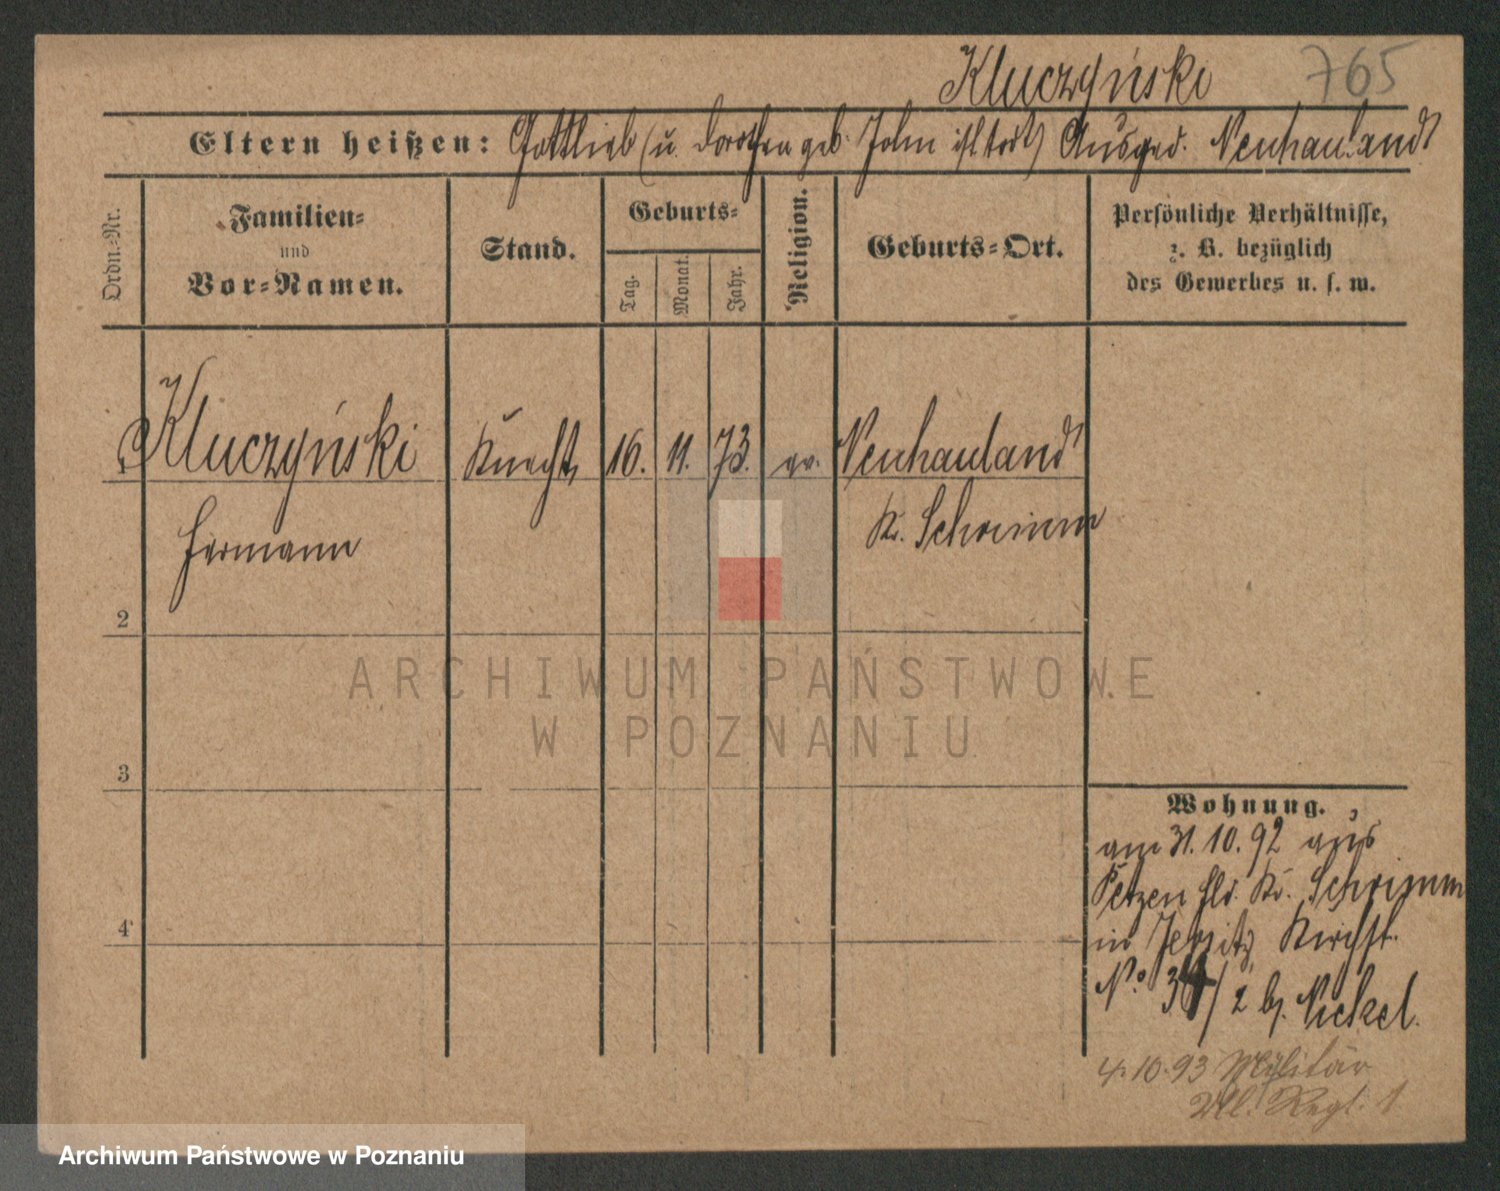 Kluczyński 765
Eltern heißen: Gottlieb (u. Dorothea geb. John ist todt) Ausged. Neuhauland
Ordn.-Nr.
Familien-
und
Vor-Namen.
Stand.
Geburts-
Tag.
Monat.
Jahr.
Religion.
Geburts-Ort.
Persönliche Verhältnisse,
z. B. bezüglich
des Gewerbes u. s. w.
1 Kluczyński Knecht 16. 11. 73. ev. Neuhauland
Hermann Kr. Schrimm
2
3
4
ARCHIWUM PAŃSTWOWE
W POZNANIU
Wohnung.
am 31. 10. 92 aus
Petzen Hld. Kr. Schrimm
in Jersitz Kirchst.
No 34/2 b.
4. 10. 93 Militär
Regt. 1
Archiwum Państwowe w Poznaniu